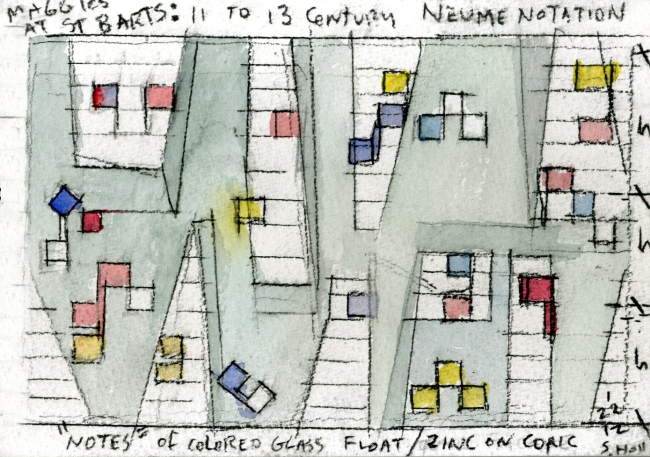 MAGGIES
AT ST BARTS: 11 TO 13 CENTURY NEUME NOTATION
"NOTES" OF COLORED GLASS FLOAT / ZINC ON COPIC
S. Holl